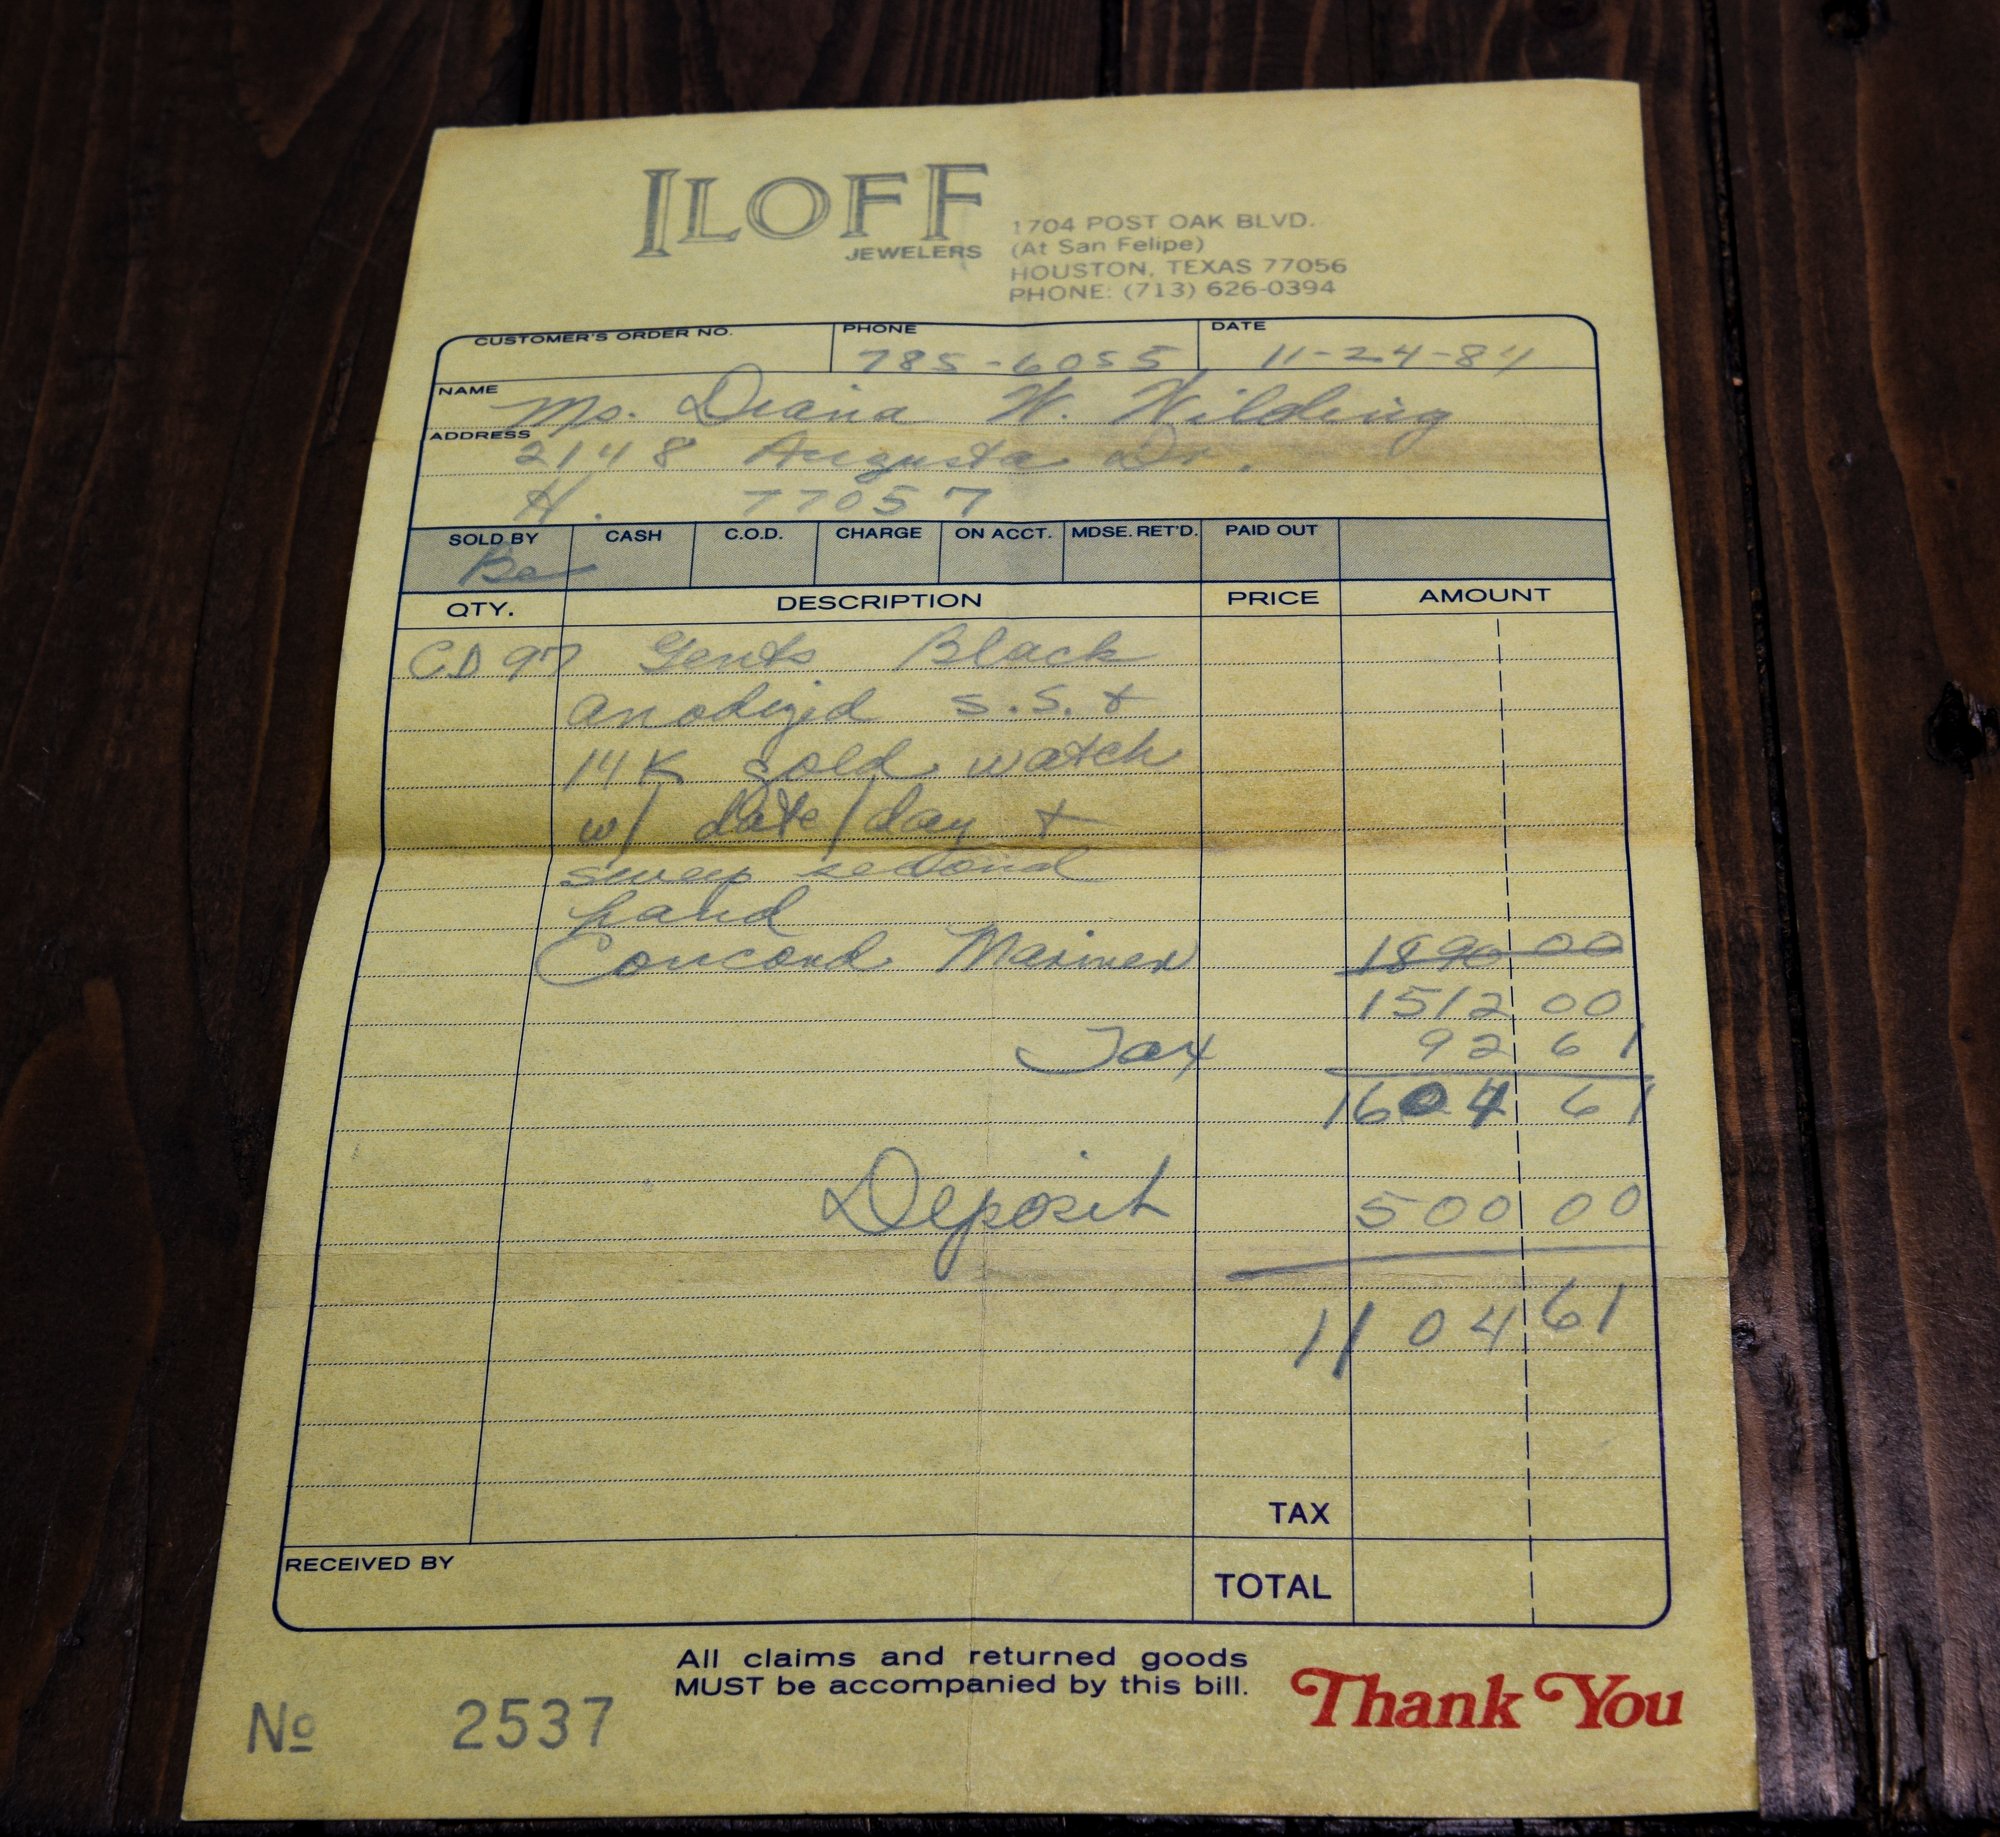 ILOFF
JEWELERS
1704 POST OAK BLVD.
(At San Felipe)
HOUSTON, TEXAS 77056
PHONE: (713) 626-0394
CUSTOMER'S ORDER NO. PHONE DATE
785-6055 11-24-84
NAME Ms. Diana W. Wilding
ADDRESS 2148 Augusta Dr.
H. 77057
SOLD BY CASH C.O.D. CHARGE ON ACCT. MDSE. RET'D. PAID OUT
Be
QTY. DESCRIPTION PRICE AMOUNT
CD 97 Gents Black
anodized s.s. &
14K gold watch
w/ date/day &
sweep second
hand
Concord Mariner 1890 00
1512 00
Tax 92 61
1604 61
Deposit 500 00
1104 61
TAX
RECEIVED BY TOTAL
All claims and returned goods
MUST be accompanied by this bill.
Thank You
No 2537